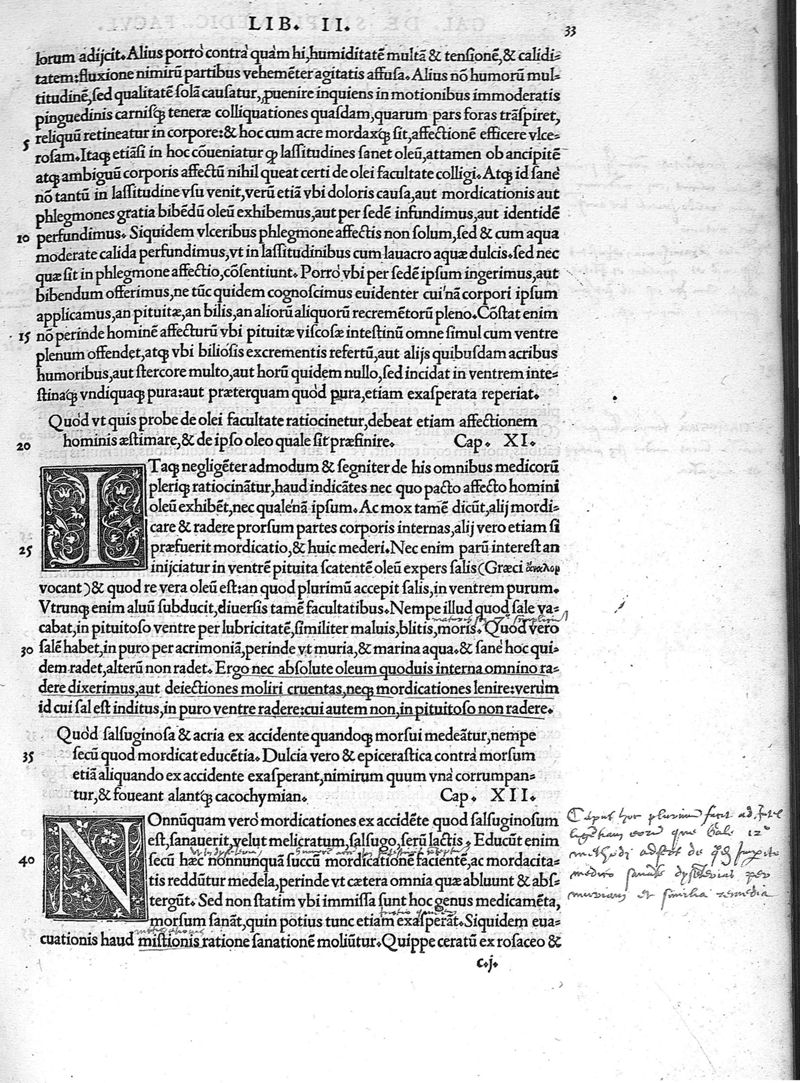 LIB. II.
33
lorum adijcit. Alius porrò contrà quàm hi, humiditatē multā & tensionē, & calidi-
tatem: fluxione nimirū partibus vehemēter agitatis affusa. Alius nō humorū mul-
titudinē, sed qualitatē solā causatur, ꝓuenire inquiens in motionibus immoderatis
pinguedinis carnisq́ꝫ teneræ colliquationes quasdam, quarum pars foras trāspiret,
5 reliquū retineatur in corpore: & hoc cum acre mordaxq́ꝫ sit, affectionē efficere vlce-
rosam. Itaqꝫ etiāsi in hoc cōueniatur ꝙ lassitudines sanet oleū, attamen ob ancipitē
atqꝫ ambiguū corporis affectū nihil queat certi de olei facultate colligi. Atqꝫ id sanè
nō tantū in lassitudine vsu venit, verū etiā vbi doloris causa, aut mordicationis aut
phlegmones gratia bibēdū oleū exhibemus, aut per sedē infundimus, aut identidē
10 perfundimus. Siquidem vlceribus phlegmone affectis non solum, sed & cum aqua
moderate calida perfundimus, vt in lassitudinibus cum lauacro aquæ dulcis. sed nec
quæ sit in phlegmone affectio, cōsentiunt. Porrò vbi per sedē ipsum ingerimus, aut
bibendum offerimus, ne tūc quidem cognoscimus euidenter cui'nā corpori ipsum
applicamus, an pituitæ, an bilis, an aliorū aliquorū recremētorū pleno. Cōstat enim
15 nō perinde hominē affecturū vbi pituitæ viscosæ intestinū omne simul cum ventre
plenum offendet, atqꝫ vbi biliosis excrementis refertū, aut alijs quibusdam acribus
humoribus, aut stercore multo, aut horū quidem nullo, sed incidat in ventrem inte-
stinaq́ꝫ vndiquaqꝫ pura: aut præterquam quòd pura, etiam exasperata reperiat.
Quòd vt quis probe de olei facultate ratiocinetur, debeat etiam affectionem
20 hominis æstimare, & de ipso oleo quale sit præfinire. Cap. XI.
ITaqꝫ negligēter admodum & segniter de his omnibus medicorū
pleriqꝫ ratiocinātur, haud indicātes nec quo pacto affecto homini
oleū exhibēt, nec quale'nā ipsum. Ac mox tamē dicūt, alij mordi-
care & radere prorsum partes corporis internas, alij vero etiam si
25 præfuerit mordicatio, & huic mederi. Nec enim parū interest an
inijciatur in ventrē pituita scatentē oleū expers salis (Græci ἄναλον
vocant) & quod re vera oleū est: an quod plurimū accepit salis, in ventrem purum.
Vtrunqꝫ enim aluū subducit, diuersis tamē facultatibus. Nempe illud quod sale va-
cabat, in pituitoso ventre per lubricitatē, similiter maluis, blitis, moris. Quod vero
30 salē habet, in puro per acrimoniā, perinde vt muria, & marina aqua. & sanè hoc qui-
dem radet, alterū non radet. Ergo nec absolute oleum quoduis interna omnino ra-
dere dixerimus, aut deiectiones moliri cruentas, neqꝫ mordicationes lenire: verùm
id cui sal est inditus, in puro ventre radere: cui autem non, in pituitoso non radere.
Quòd salsuginosa & acria ex accidente quandoqꝫ morsui medeātur, nempe
35 secū quod mordicat educētia. Dulcia vero & epicerastica contrà morsum
etiā aliquando ex accidente exasperant, nimirum quum vnà corrumpan-
tur, & foueant alantq́ꝫ cacochymian. Cap. XII.
NOnnūquam vero mordicationes ex accidēte quod salsuginosum
est, sanauerit, velut melicratum, salsugo, serū lactis. Educūt enim
40 secū hæc nonnunquā succū mordicationē facientē, ac mordacita-
tis reddūtur medela, perinde vt cætera omnia quæ abluunt & abs-
tergūt. Sed non statim vbi immissa sunt hoc genus medicamēta,
morsum sanāt, quin potius tunc etiam exasperāt. Siquidem eua-
cuationis haud mistionis ratione sanationē moliūtur. Quippe ceratū ex rosaceo &
c.j.
Caput hoc plurimum facit ad
medico
muriam et similia remedia